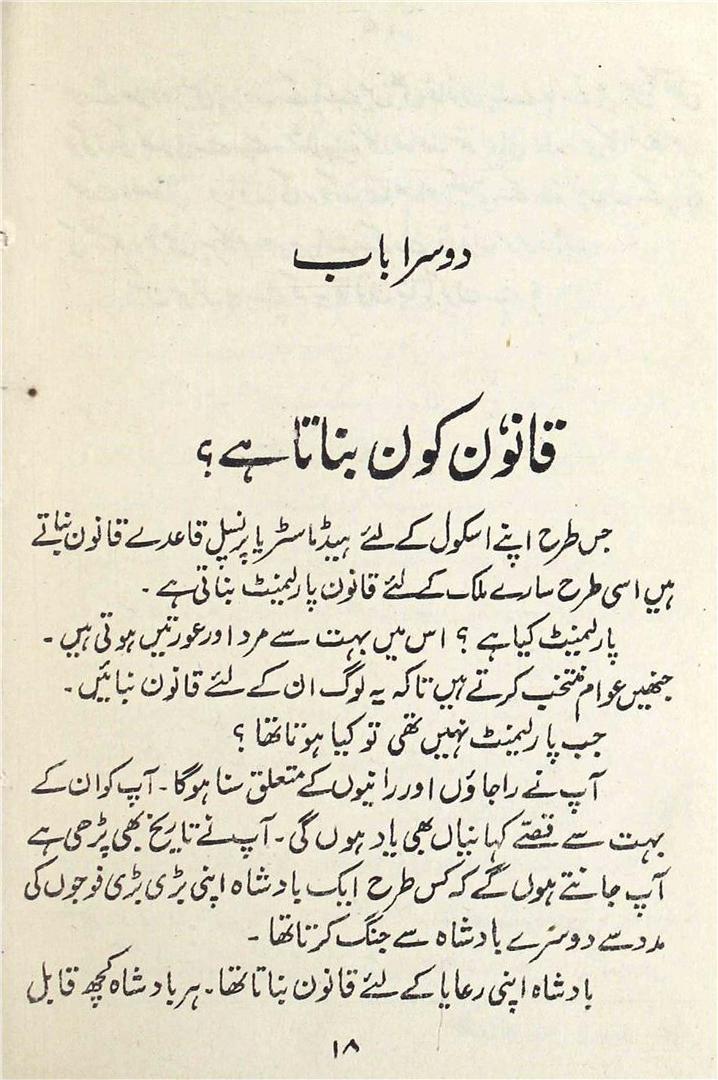 دوسرا باب
قانون کون بناتا ہے؟
جس طرح اپنے اسکول کے لئے ہیڈ ماسٹر یا پرنسپل قاعدے قانون بناتے
ہیں اسی طرح سارے ملک کے لئے قانون پارلیمنٹ بناتی ہے۔
پارلیمنٹ کیا ہے؟ اس میں بہت سے مرد اور عورتیں ہوتی ہیں۔
جنھیں عوام منتخب کرتے ہیں تاکہ یہ لوگ ان کے لئے قانون بنائیں۔
جب پارلیمنٹ نہیں تھی تو کیا ہوتا تھا؟
آپ نے راجاؤں اور رانیوں کے متعلق سنا ہوگا۔ آپ کو ان کے
بہت سے قصّے کہانیاں بھی یاد ہوں گی۔ آپ نے تاریخ بھی پڑھی ہے
آپ جانتے ہوں گے کہ کس طرح ایک بادشاہ اپنی بڑی بڑی فوجوں کی
مدد سے دوسرے بادشاہ سے جنگ کرتا تھا۔
بادشاہ اپنی رعایا کے لئے قانون بناتا تھا۔ ہر بادشاہ کچھ قابل
۱۸